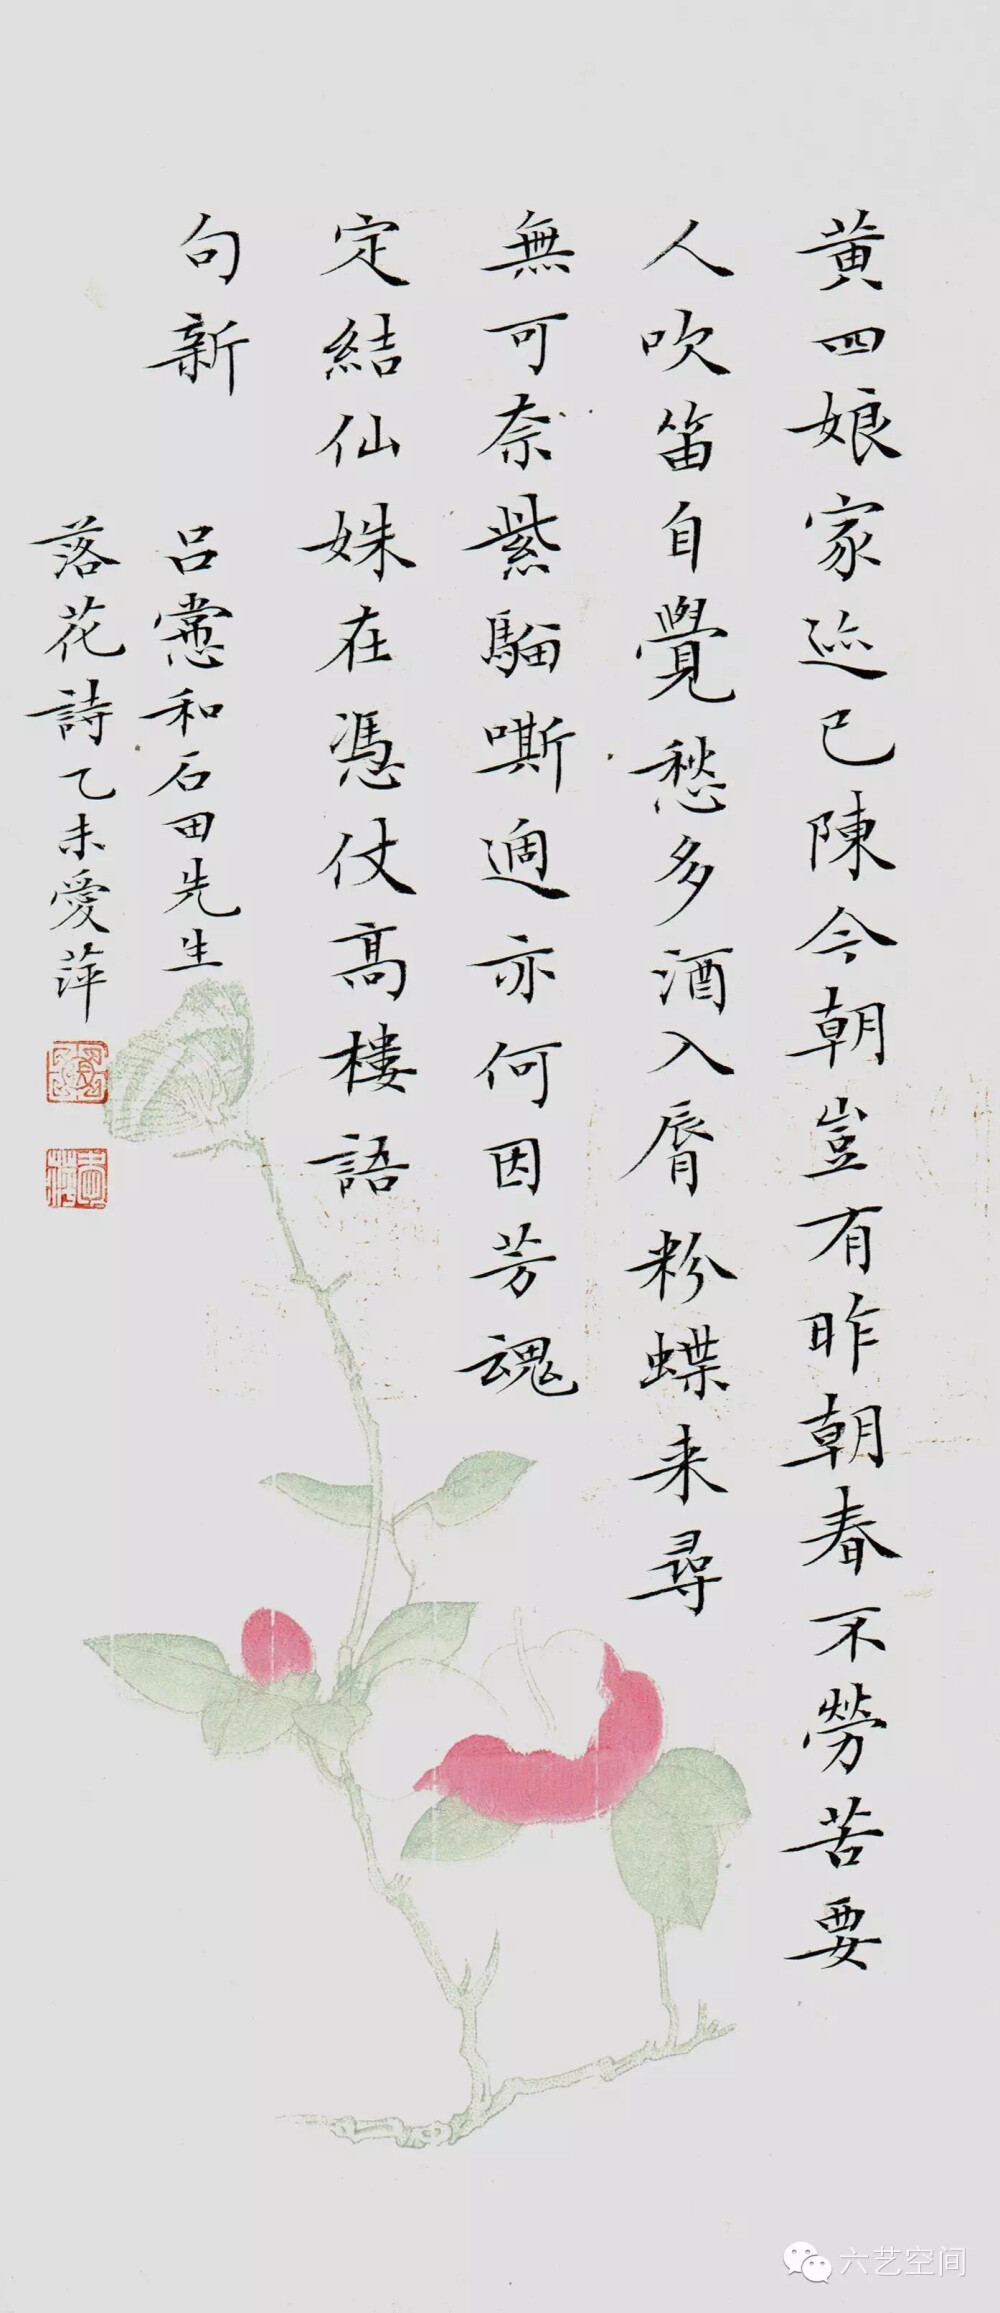 黄四娘家迹已陳今朝豈有昨朝春不勞苦要
人吹笛自覺愁多酒入脣粉蝶来尋
無可奈紫騮嘶過亦何因芳魂
定結仙姝在憑仗髙樓語
句新
吕㦂和石田先生
落花詩乙未愛萍
六艺空间